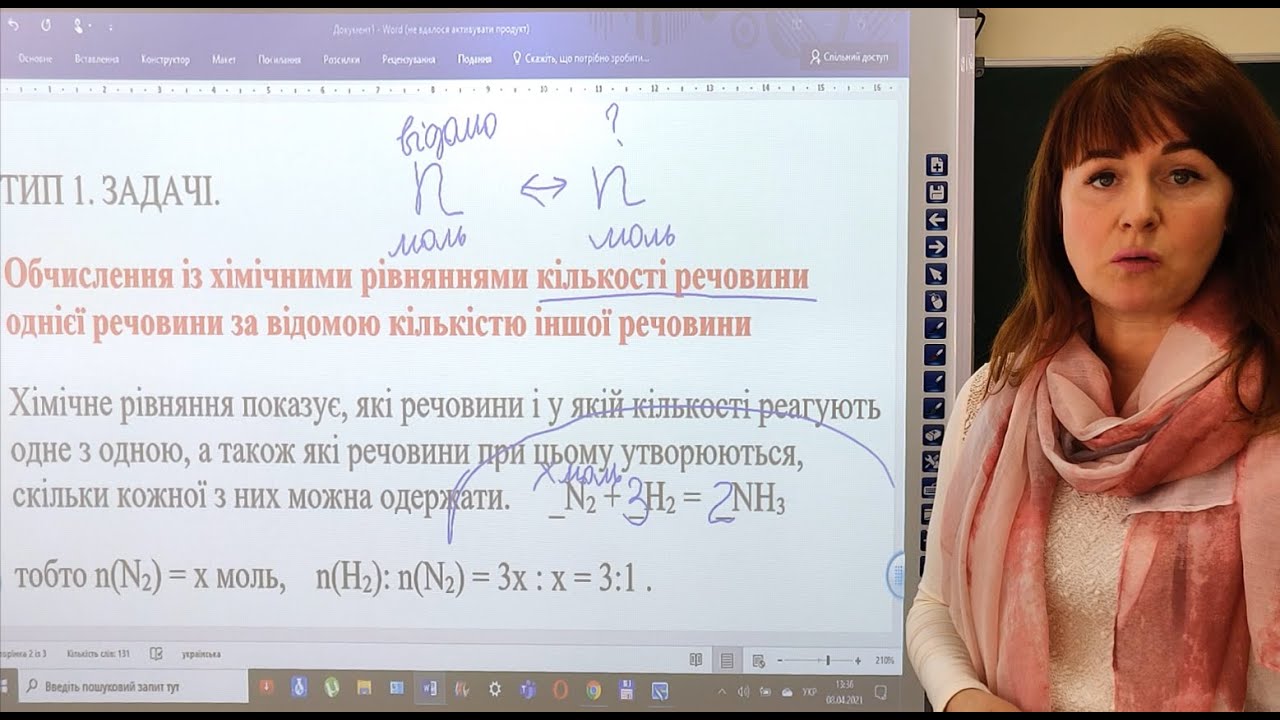 Документ1 - Word (не вдалося активувати продукт)
Основне Вставлення Конструктор Макет Посилання Розсилки Рецензування Подання Скажіть, що потрібно зробити... Спільний доступ
1 2 3 4 5 6 7 8 9 10 11 12 13 14 15 16
відомо ?
ТИП 1. ЗАДАЧІ. n ↔ n
моль моль
Обчислення із хімічними рівняннями кількості речовини
однієї речовини за відомою кількістю іншої речовини
Хімічне рівняння показує, які речовини і у якій кількості реагують
одне з одною, а також які речовини при цьому утворюються,
х моль
скільки кожної з них можна одержати. _N₂ + 3H₂ = 2NH₃
тобто n(N₂) = x моль, n(H₂): n(N₂) = 3x : x = 3:1 .
сторінка 2 із 3 Кількість слів: 131 українська 210%
Введіть пошуковий запит тут УКР 13:36
08.04.2021